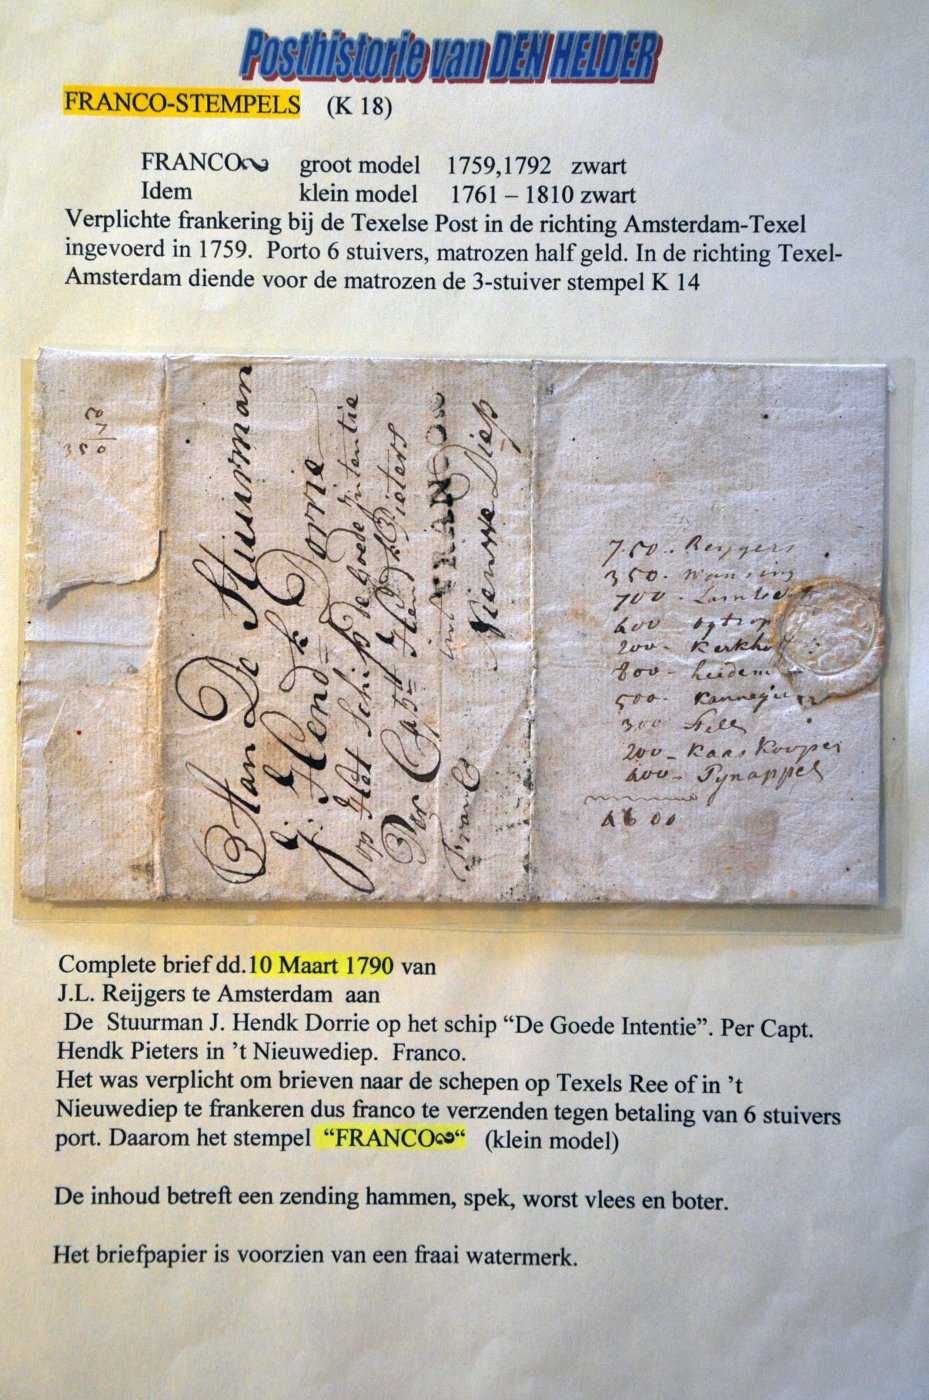 Posthistorie van DEN HELDER
FRANCO-STEMPELS (K 18)
FRANCO groot model 1759,1792 zwart
Idem klein model 1761 – 1810 zwart
Verplichte frankering bij de Texelse Post in de richting Amsterdam-Texel
ingevoerd in 1759. Porto 6 stuivers, matrozen half geld. In de richting Texel-
Amsterdam diende voor de matrozen de 3-stuiver stempel K 14
350
Aan De Stuurman
J: Hendk Dorrie
op Het Schip De Goede Intentie
Per Capt Hendk Pieters
FRANCO
Franco int Nieuwe Diep
750 - Reijgers
350 - Wansing
700 - Lambert
400 -
200 - Kerkho
800 -
500 - Kannegie
300 - Nell
200 - Kaaskooper
400 - Pynappel
4600
Complete brief dd.10 Maart 1790 van
J.L. Reijgers te Amsterdam aan
De Stuurman J. Hendk Dorrie op het schip “De Goede Intentie”. Per Capt.
Hendk Pieters in ’t Nieuwediep. Franco.
Het was verplicht om brieven naar de schepen op Texels Ree of in ’t
Nieuwediep te frankeren dus franco te verzenden tegen betaling van 6 stuivers
port. Daarom het stempel “FRANCO“ (klein model)
De inhoud betreft een zending hammen, spek, worst vlees en boter.
Het briefpapier is voorzien van een fraai watermerk.